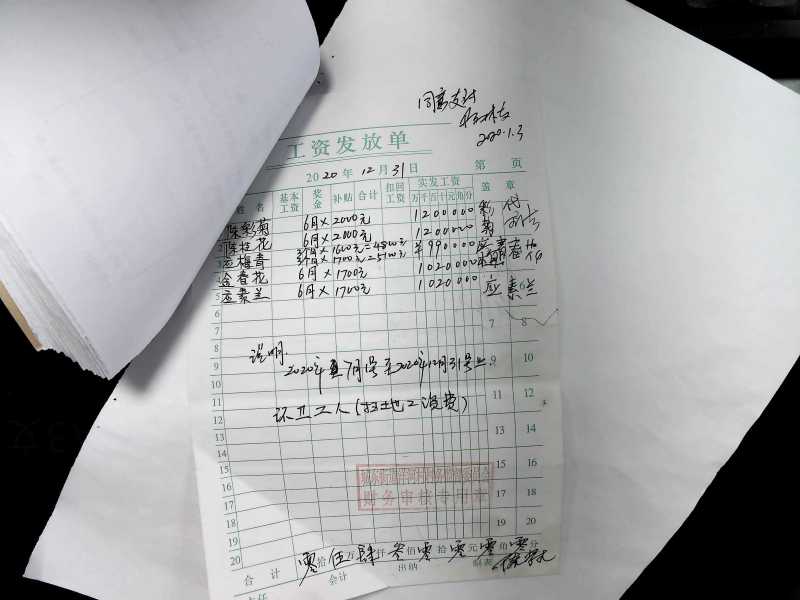 同意支付
2020.1.3
工资发放单
2020年12月31日 第 页
姓名 基本工资 奖金 补贴 合计 扣回工资 实发工资 盖章
万千百十元角分
陈彩菊 6月×2000元 1200000
陈桂花 6月×2000元 1200000
应梅青 3月×1600元=4800元 3月×1700元=5100元 ¥990000
金春花 6月×1700元 1020000
5 应素兰 6月×1700元 1020000 应素兰
6
7 7 8
8 说明
9 2020年7月1号至2020年12月31号止 9 10
10
11 环卫工人(扫地工资费) 11 12
12
13 13 14
14
15 15 16
16
17 财务审核专用章 17 18
18
19 19 20
20
合计 零拾伍万肆仟叁佰零拾零元零角零分
会计 出纳 制表